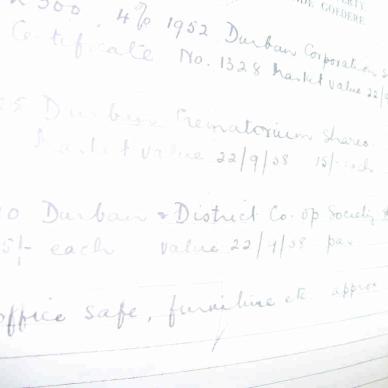 DE GOEDERE
500. 4% 1952 Durban Corporation S
Certificate No. 1328 Market value 22/9
25 Durban Crematorium Shares
Market value 22/9/58 15/- each
10 Durban & District Co. op Society
5/- each value 22/9/58 par
office safe, furniture etc approx